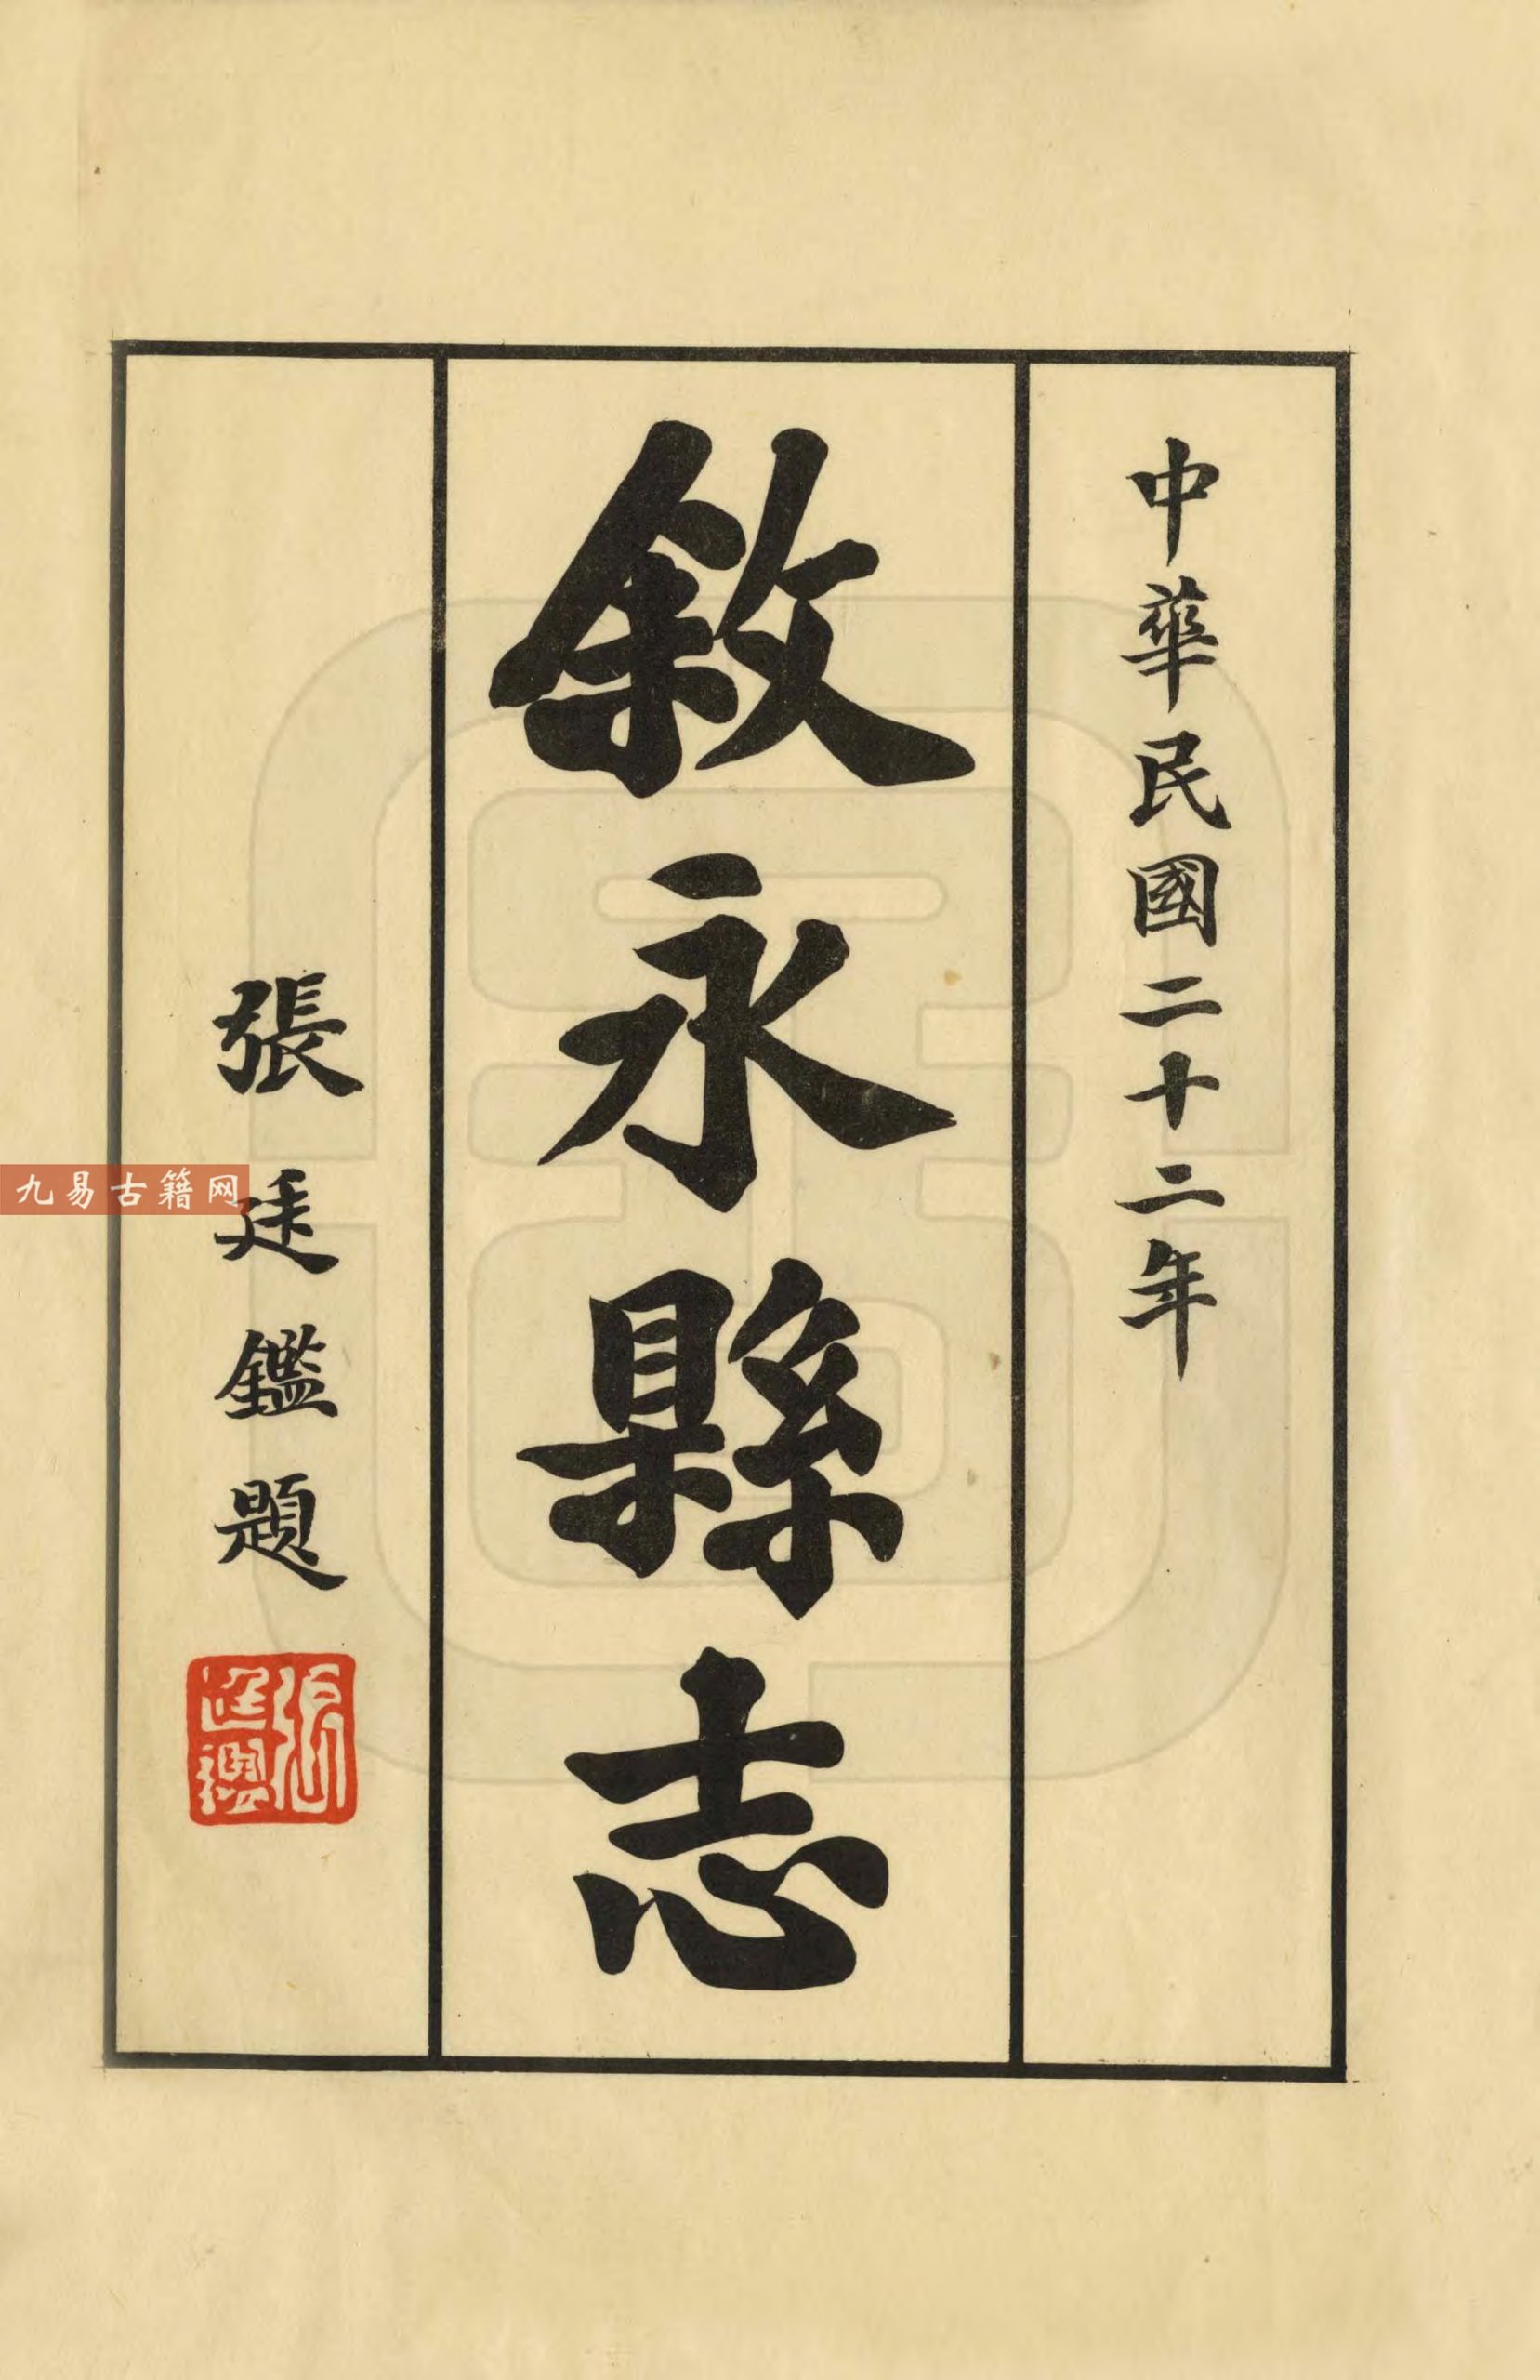 中華民國二十二年
敘永縣志
張廷鑑題
張廷鑑
九易古籍网